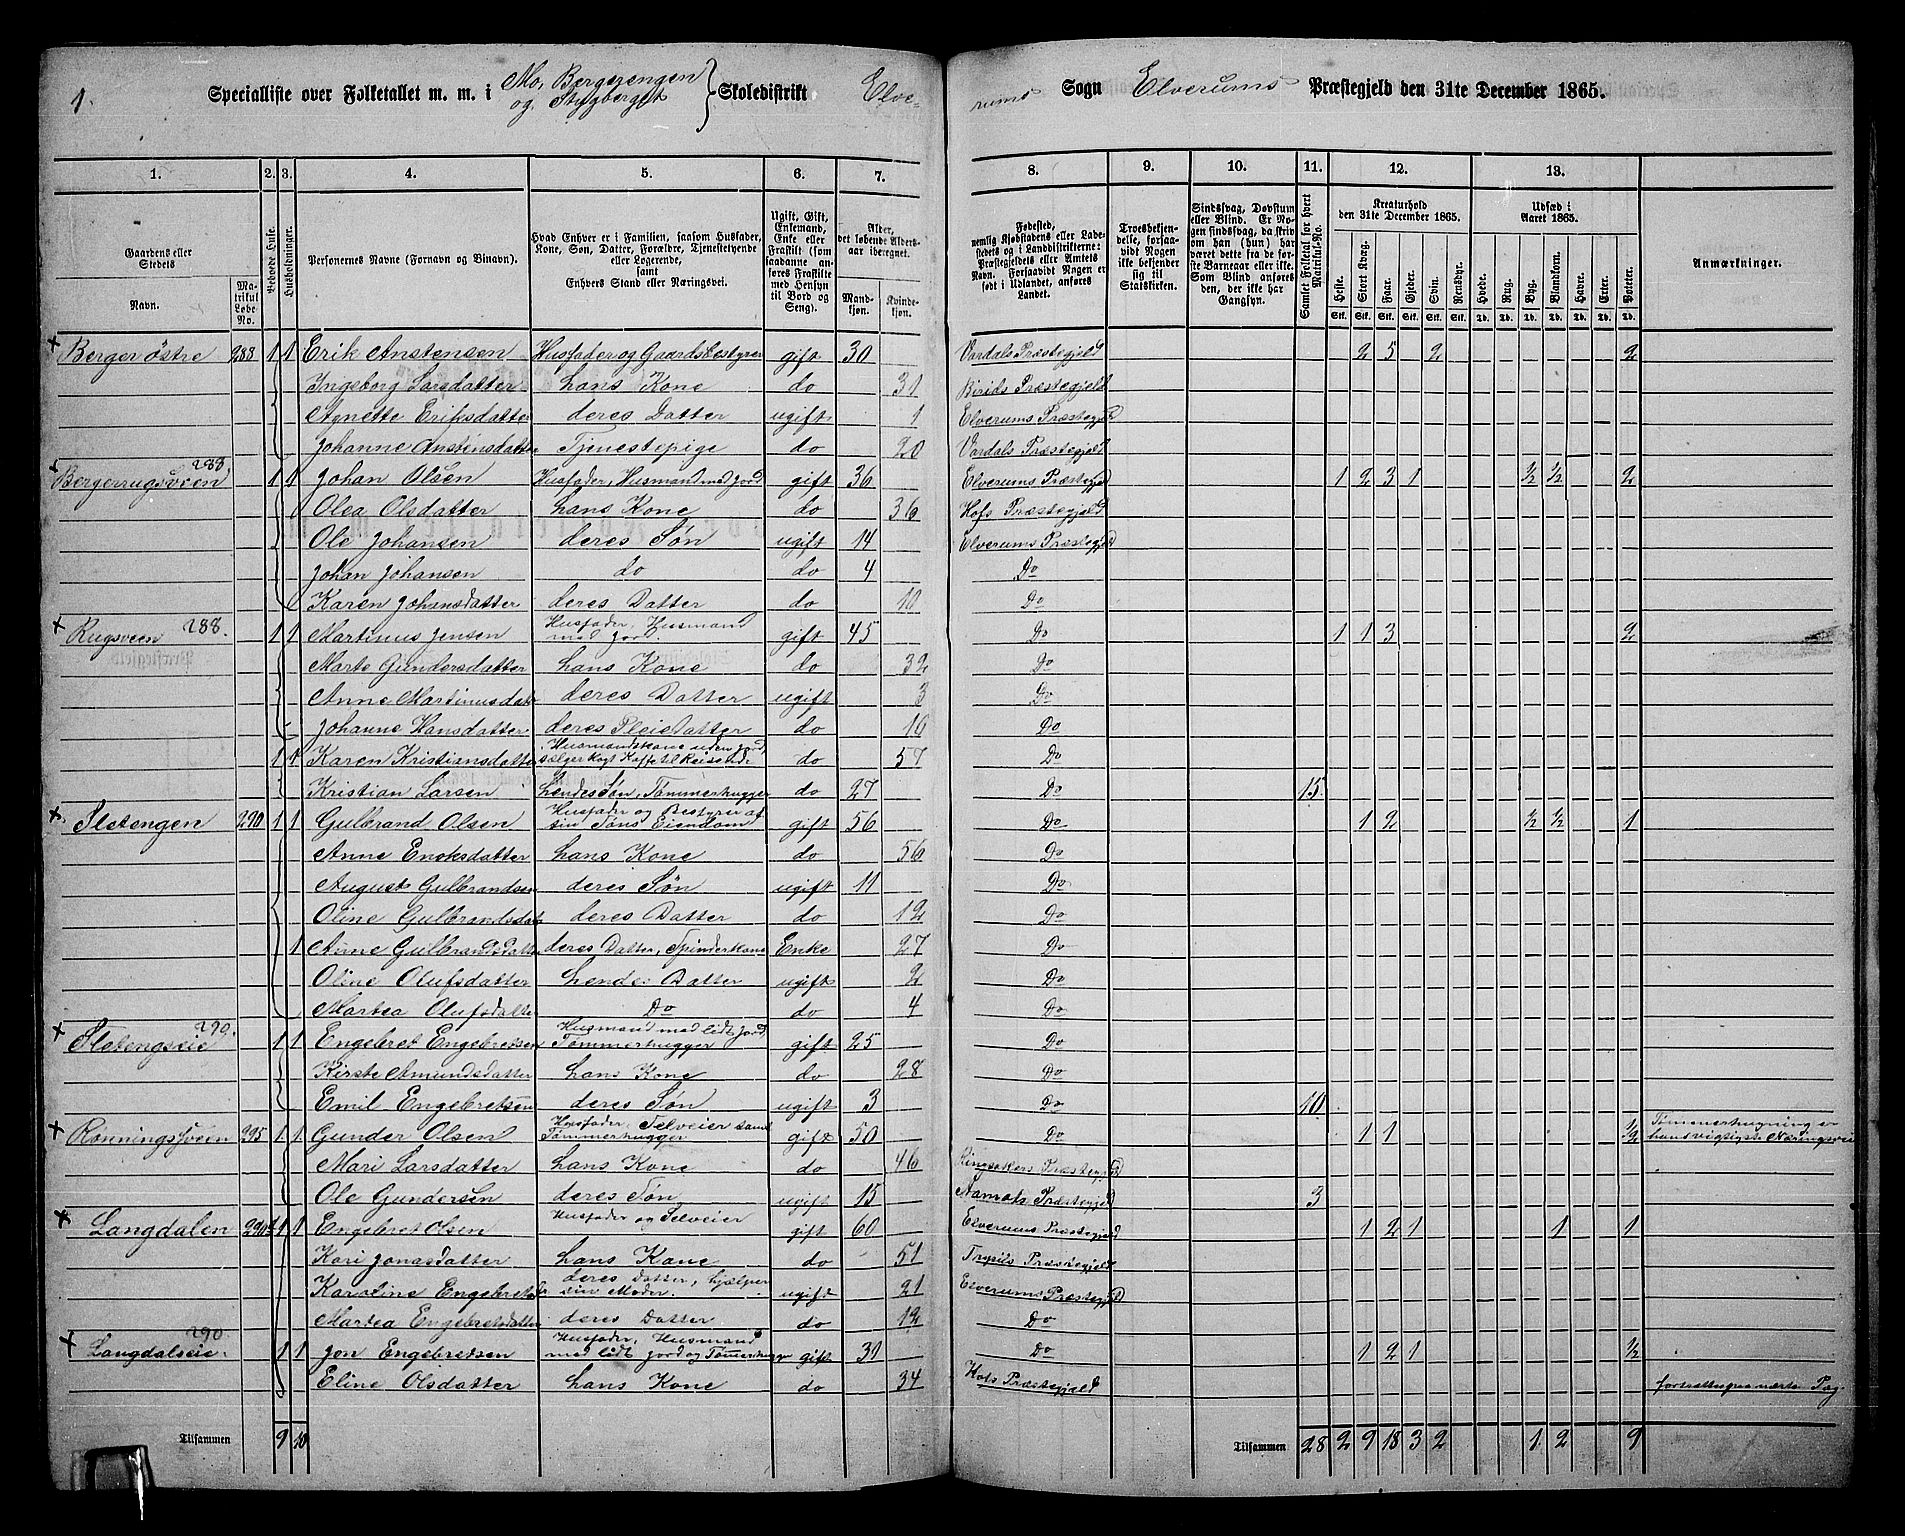 1.
Specialliste over Folketallet m. m. i Mo, Bergerengen og Stygberget Skoledistrikt Elve-
rums Sogn Elverums Præstegjeld den 31te December 1865.
1. 2. 3. 4. 5. 6. 7. 8. 9. 10. 11. 12. 13.
Gaardens eller Stedets
Navn.
Matrikul Løbe-No.
Beboede Huse.
Husholdninger.
Personernes Navne (Fornavn og Binavn).
Hvad Enhver er i Familien, saasom Husfader, Kone, Søn, Datter, Forældre, Tjenestetyende eller Logerende, samt Enhvers Stand eller Næringsvei.
Ugift, Gift, Enkemand, Enke eller Fraskilt (som saadanne anføres Fraskilte med Hensyn til Bord og Seng).
Alder, det løbende Alders-aar iberegnet.
Mand-kjøn. Kvinde-kjøn.
Fødested, nemlig Kjøbstadens eller Ladestedets og i Landdistrikterne: Præstegjeldets eller Amtets Navn. Forsaavidt Nogen er født i Udlandet, anføres Landet.
Troesbekjendelse, forsaavidt Nogen ikke bekjender sig til Statskirken.
Sindssvag, Døvstum eller Blind. Er Nogen sindssvag, da skriv om han (hun) har været dette fra de første Barneaar eller ikke. Som Blind anføres den, der ikke har Gangsyn.
Samlet Folketal for hvert Matrikul-No.
Kreaturhold den 31te December 1865.
Heste. Stort Kvæg. Faar. Gjeder. Svin. Rensdyr.
Stk. Stk. Stk. Stk. Stk. Stk.
Udsæd i Aaret 1865.
Hvede. Rug. Byg. Blandkorn. Havre. Erter. Poteter.
Td. Td. Td. Td. Td. Td. Td.
Anmærkninger.
Berger østre 288 1 1 Erik Anstensen Husfader og Gaardsbestyrer gift 30 Vardals Præstegjeld 2 5 2 2
Ingeborg Larsdatter hans Kone do 31 Birids Præstegjeld
Agnette Eriksdatter deres Datter ugift 1 Elverums Præstegjeld
Johanne Anstensdatter Tjenestepige do 20 Vardals Præstegjeld
Bergerrugsveen 288. 1 1 Johan Olsen Husfader, Husmand med Jord gift 36 Elverums Præstegjeld 1 2 3 1 ½ ½ 2
Olea Olsdatter hans Kone do 36 Hofs Præstegjeld
Ole Johansen deres Søn ugift 14 Elverums Præstegjeld
Johan Johansen do do 4 Do
Karen Johansdatter deres Datter do 10 Do
Rugsveen 288. 1 1 Martinus Jensen Husfader, Husmand med Jord. gift 45 Do 1 1 3 2
Marte Gundersdatter hans Kone do 32 Do
Anne Martinusdatr deres Datter ugift 3 Do
Johanne Hansdatter. deres Pleiedatter do 16 Do
1 1 Karen Kristiansdatter Husmandskone uden Jord, sælger kogt Kaffe til Reisende do 57 Do
Kristian Larsen hendes Søn, Tømmerhugger do 27 Do 15.
Sletengen 290 1 1 Gulbrand Olsen Husfader og Bestyrer af sin Søns Eiendom gift 56 Do 1 2 ½ ½ 1
Anne Enoksdatter hans Kone do 56 Do
August Gulbrandsen deres Søn ugift 11 Do
Oline Gulbrandsdatr deres Datter do 12 Do
1 Anne Gulbrandsdatter deres Datter, Spinderkone Enke 27 Do
Oline Olufsdatter hendes Datter ugift 2 Do
Martea Olufsdatter Do do 4 Do
Sletengseie 290. 1 1 Engebret Engebretsen Husmand med lidt Jord, Tømmerhugger gift 25 Do
Kirste Amundsdatter hans Kone do 28 Do
Emil Engebretsen deres Søn ugift 3 Do 10
Rønningsveen 295 1 1 Gunder Olsen Husfader, Selveier samt Tømmerhugger gift 50 Do 1 1 ½ Tømmerhugning er hans vigtigste Næringsvei
Mari Larsdatter hans Kone do 46 Ringsakers Præstegjeld
Ole Gundersen deres Søn ugift 15 Præstegjeld 3
Langdalen 290 1 1 Engebret Olsen Husfader og Selveier gift 60 Elverums Præstegjeld 1 2 1 1 1
Kari Jonasdatter hans Kone do 51 Trysils Præstegjeld
Karoline Engebretsdr deres Datter, hjælper sin Moder. ugift 21 Elverums Præstegjeld
Martea Engebretsdatter deres Datter do 12 Do
Langdalseie. 290. 1 1 Jon Engebretsen Husfader, Husmand med lidt Jord og Tømmerhugger gift 31 Do 1 2 1 ½
Eline Olsdatter hans Kone do 34 Hofs Præstegjeld fortsættes paa næste Pag.
Tilsammen 9 10 Tilsammen 28 2 9 18 3 2 1 2 9